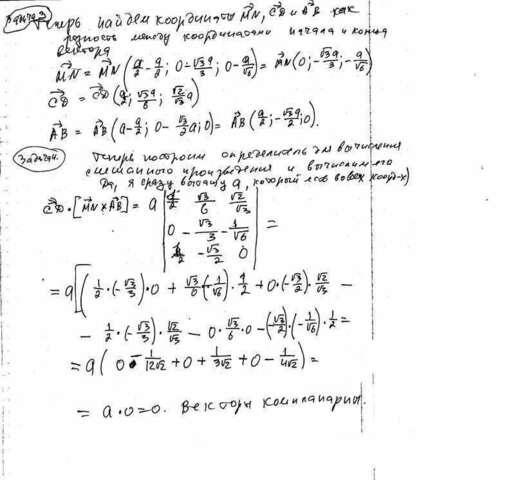 Задача 3
Теперь найдём координаты MN, CD и AB как
разность между координатами начала и конца
вектора
MN = MN (a/2 - a/2; 0 - √3a/3; 0 - a/√6) = MN (0; -√3a/3; -a/√6)
CD = CD (a/2; √3a/6; √2/√3 a)
AB = AB (a - a/2; 0 - √3/2 a; 0) = AB (a/2; -√3a/2; 0).
Задача 4. Теперь построим определитель для вычисления
смешанного произведения и вычислим его
я сразу выношу a, который есть во всех коорд-х)
CD · [MN × AB] = a | 1/2 √3/6 √2/√3 |
| 0 -√3/3 -1/√6 | =
| 1/2 -√3/2 0 |
= a [ ( 1/2 · (-√3/3) · 0 + √3/6 (-1/√6) · 1/2 + 0 · (-√3/2) · √2/√3 -
- 1/2 · (-√3/3) · √2/√3 - 0 · √3/6 · 0 - (-√3/2) · (-1/√6) · 1/2 =
= a ( 0 - 1/12√2 + 0 + 1/3√2 + 0 - 1/4√2 ) =
= a · 0 = 0. Векторы компланарны.